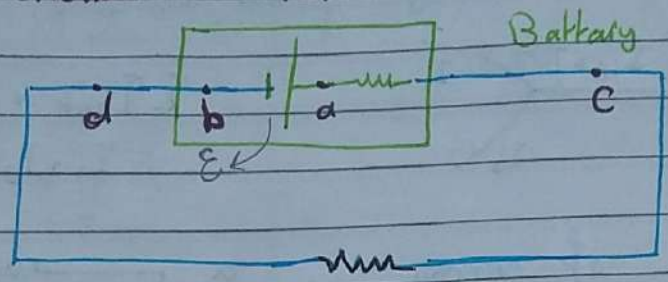 Battary
d b a c
ε